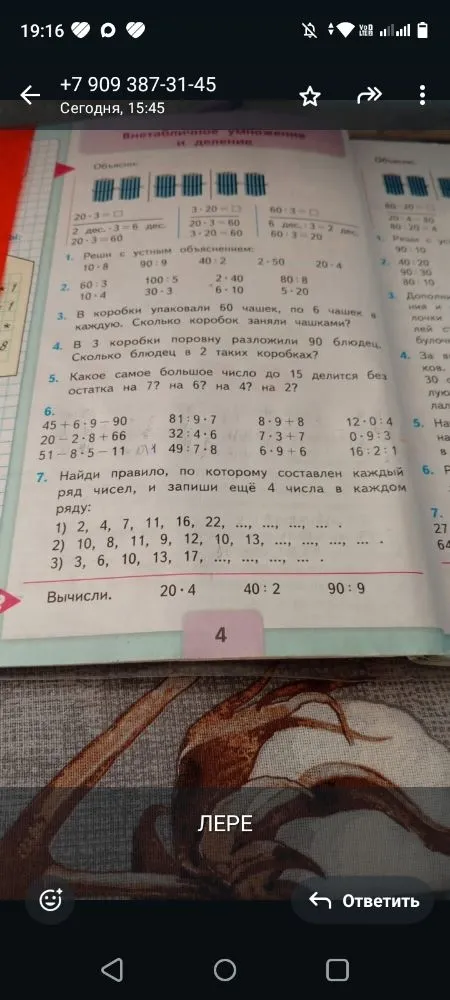 19:16
+7 909 387-31-45
Сегодня, 15:45
Внетабличное умножение
и деление
Объясни:
20 · 3 = □
2 дес. · 3 = 6 дес.
20 · 3 = 60
3 · 20 = □
20 · 3 = 60
3 · 20 = 60
60 : 3 = □
6 дес. : 3 = 2 дес.
60 : 3 = 20
1. Реши с устным объяснением:
10 · 8 90 : 9 40 : 2 2 · 50 20 · 4
2. 60 : 3 100 : 5 2 · 40 80 : 8
10 · 4 30 · 3 6 · 10 5 · 20
3. В коробки упаковали 60 чашек, по 6 чашек в
каждую. Сколько коробок заняли чашками?
4. В 3 коробки поровну разложили 90 блюдец.
Сколько блюдец в 2 таких коробках?
5. Какое самое большое число до 15 делится без
остатка на 7? на 6? на 4? на 2?
6.
45 + 6 : 9 − 90 81 : 9 · 7 8 · 9 + 8 12 · 0 : 4
20 − 2 · 8 + 66 32 : 4 · 6 7 · 3 + 7 0 · 9 : 3
51 − 8 · 5 − 11 49 : 7 · 8 6 · 9 + 6 16 : 2 : 1
7. Найди правило, по которому составлен каждый
ряд чисел, и запиши ещё 4 числа в каждом
ряду:
1) 2, 4, 7, 11, 16, 22, ..., ..., ..., ... .
2) 10, 8, 11, 9, 12, 10, 13, ..., ..., ..., ... .
3) 3, 6, 10, 13, 17, ..., ..., ..., ... .
Вычисли. 20 · 4 40 : 2 90 : 9
4
Объясни:
80 : 20 = □
20 · 4 = 80
80 : 20 = 4
1. Реши с
90 : 10
2. 40 : 20
90 : 30
80 : 10
3.
ния и
лочки
лей
4. За
ков.
30
5. На
на
в
6.
7.
27
64
ЛЕРЕ
Ответить